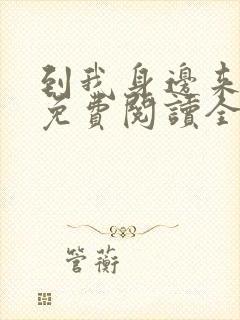 到我身邊來
免費閱讀全
管蘅